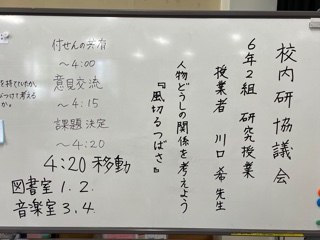 校内研協議会
6年2組 研究授業
授業者 川口 希 先生
人物どうしの関係を考えよう
『風切るつばさ』
付せんの共有
〜4:00
意見交流
〜4:15
課題決定
〜4:20
4:20 移動
図書室 1. 2.
音楽室 3. 4.